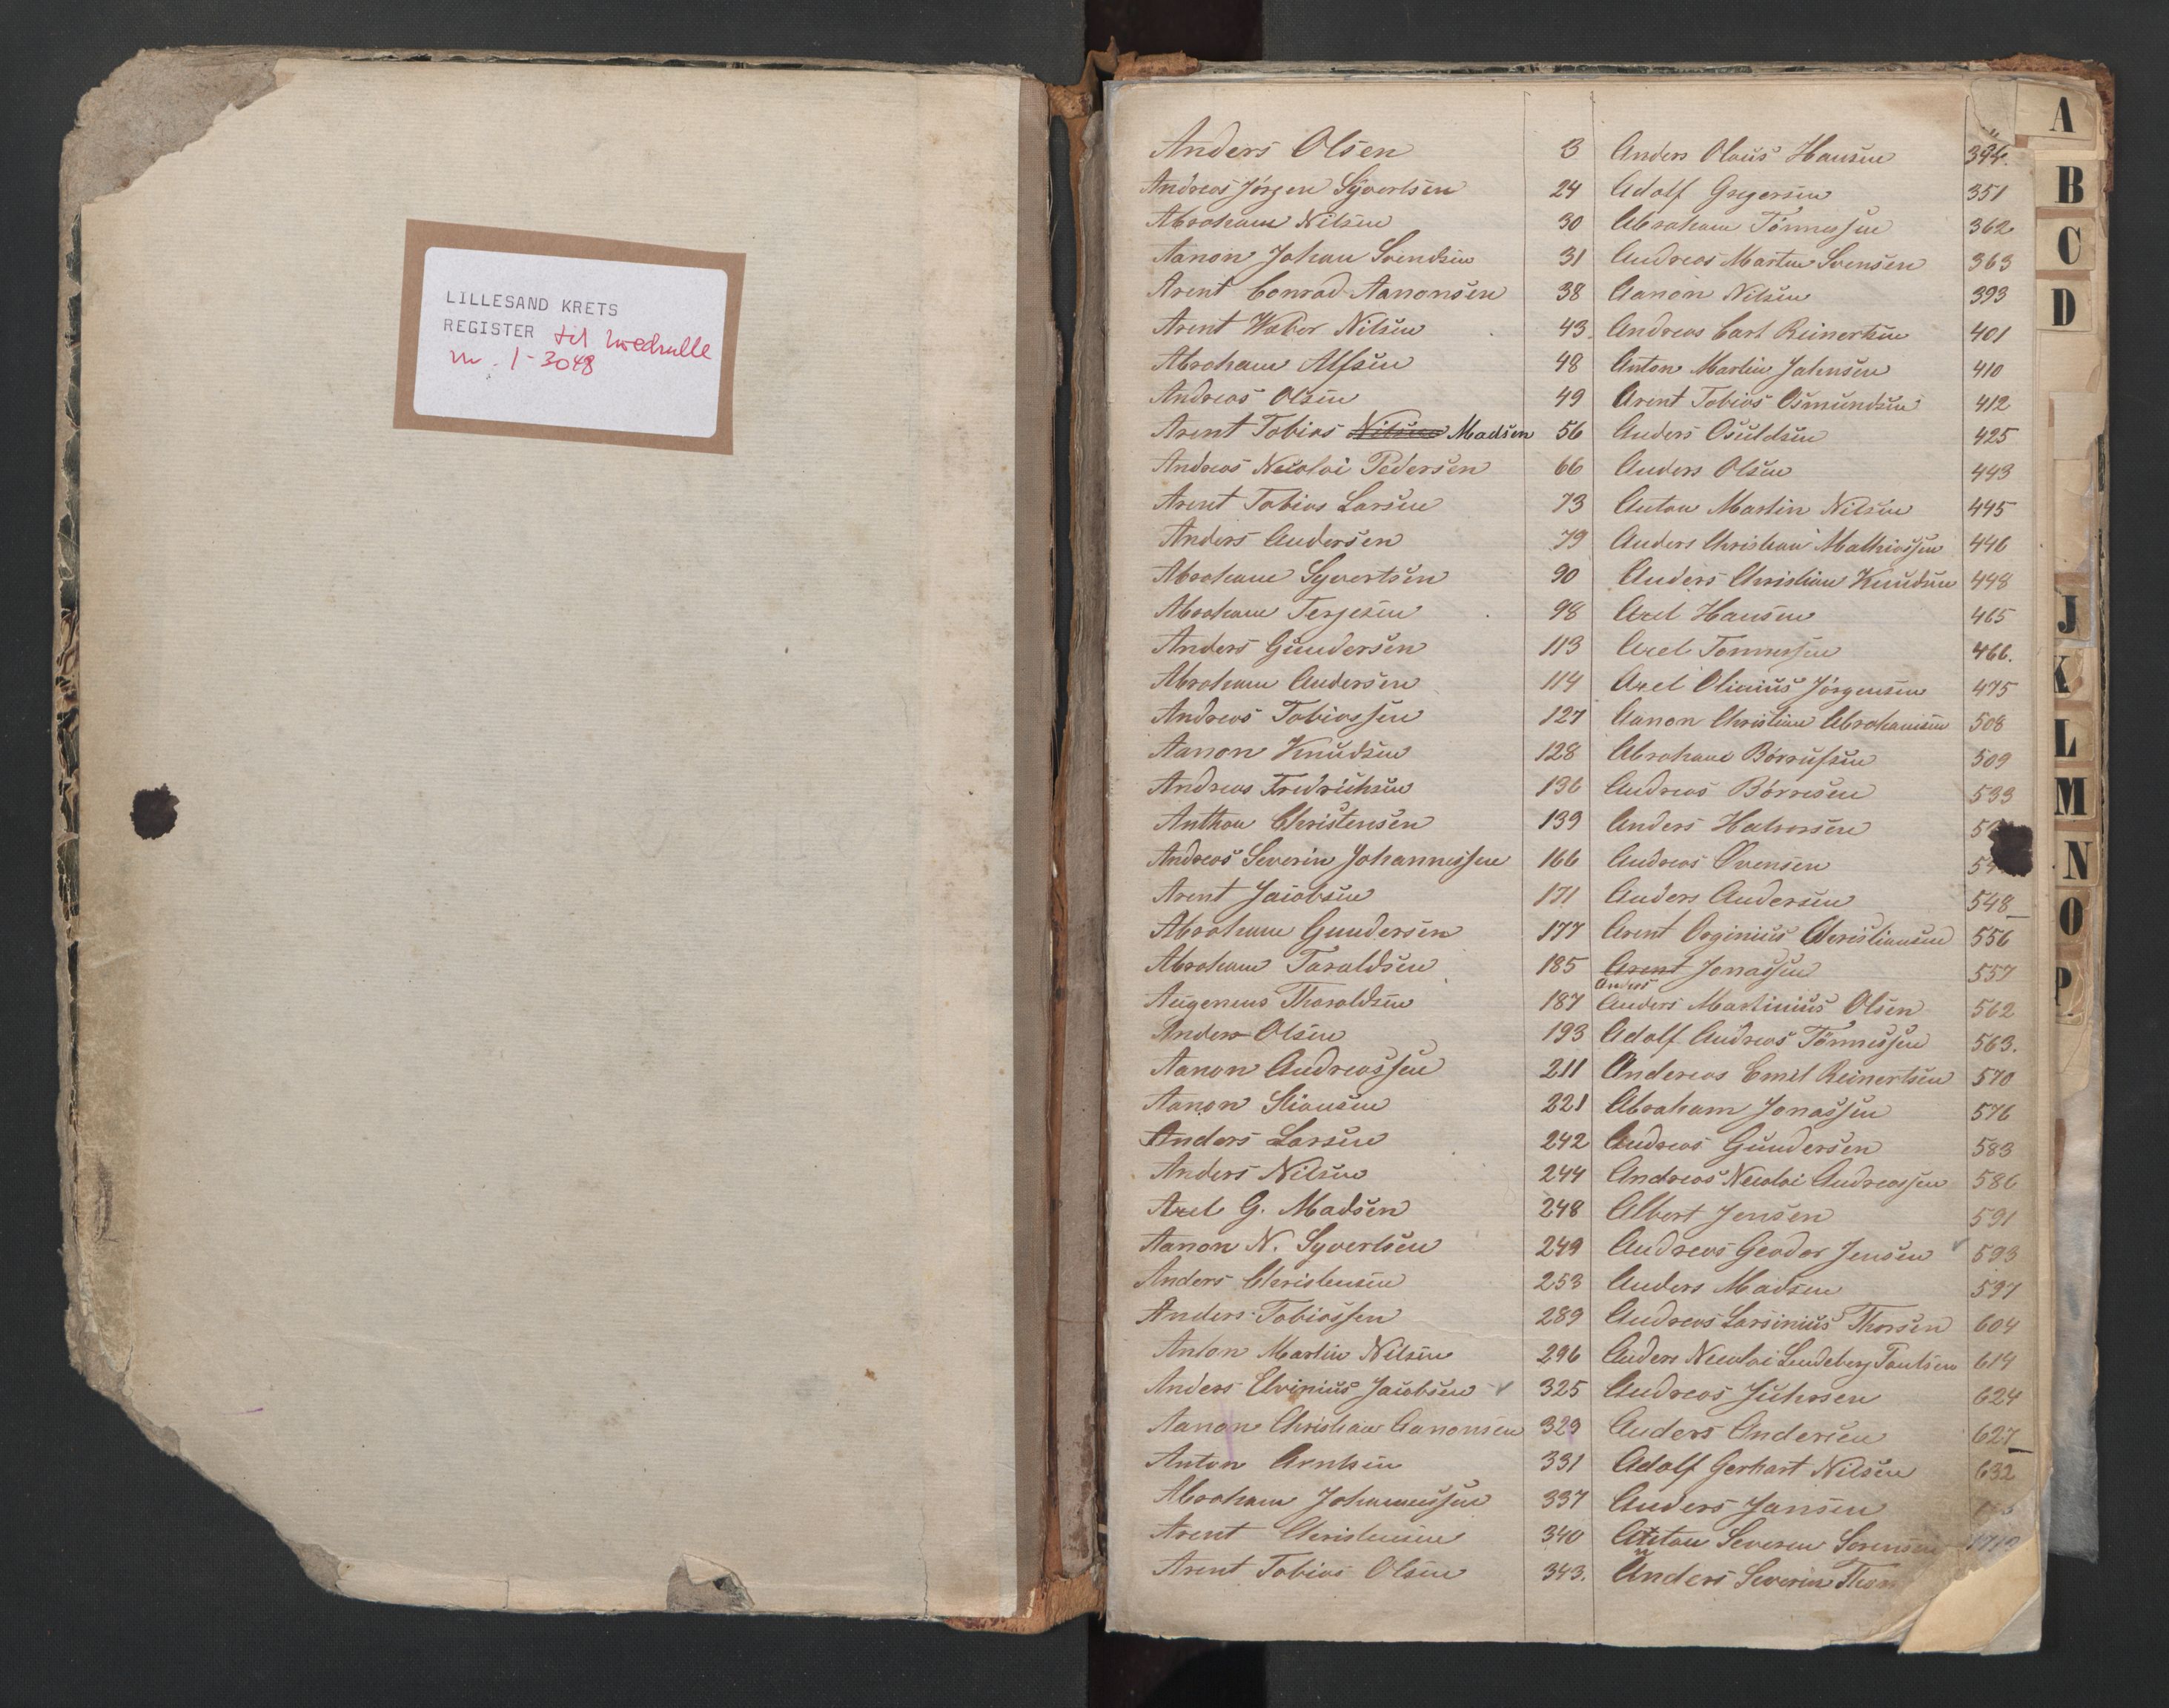 LILLESAND KRETS
REGISTER til hovedrulle
nr. 1-3048
Anders Olsen 13
Andreas Jörgen Syvertsen 24
Abraham Nilsen 30
Aanon Johan Svendsen 31
Arent Conrad Aanonsen 38
Arent Weber Nilsen 43
Abraham Alfsen 48
Andreas Olsen 49
Arent Tobias Nilsen Madsen 56
Andreas Nicolai Pedersen 66
Arent Tobias Larsen 73
Anders Andersen 79
Abraham Syvertsen 90
Abraham Terjesen 98
Anders Gundersen 113
Abraham Andersen 114
Andreas Tobiassen 127
Aanon Knudsen 128
Andreas Fredrichsen 136
Anthon Christensen 139
Andreas Severin Johannessen 166
Arent Jacobsen 171
Abraham Gundersen 177
Abraham Taraldsen 185
Augenius Tharaldsen 187
Anders Olsen 193
Aanon Andreassen 211
Aanon Stiansen 221
Anders Larsen 242
Anders Nilsen 244
Axel G. Madsen 248
Aanon N. Syvertsen 249
Anders Christensen 253
Anders Tobiassen 289
Anton Martin Nilsen 296
Anders Elvinius Jacobsen 325
Aanon Christian Aanonsen 329
Anton Arntsen 331
Abraham Johannessen 337
Arent Christensen 340
Arent Tobias Olsen 343.
Anders Olaus Hansen
Adolf Gregersen 351
Abraham Tönnessen 362
Andreas Martin Svensen 363
Aanon Nilsen 393
Andreas Carl Reinertsen 401
Anton Martin Jahnsen 410
Arent Tobias Osmundsen 412
Anders Osuldsen 425
Anders Olsen 443
Anton Martin Nilsen 445
Anders Christian Mathiassen 446
Anders Christian Knudsen 448
Axel Hansen 465
Axel Tönnessen 466.
Axel Olinius Jörgensen 475
Aanon Christian Abrahamsen 508
Abraham Börrufsen 509
Andreas Börresen 533
Anders Halvorsen
Andreas Evensen
Anders Andersen 548
Arent Orginius Christiansen 556
Arent Jonassen 557
Anders
Anders Martinius Olsen 562
Adolf Andreas Tönnessen 563.
Andereas Emil Reinertsen 570
Abraham Jonassen 576
Andreas Gundersen 583
Andreas Nicolai Andreassen 586
Albert Jensen 591
Andreas Geodor Jensen 593
Anders Madsen 597
Andreas Larsinius Thorsen 604
Anders Nicolai Lindeberg Tantsen 614
Andreas Juhrsen 624
Anders Andersen 627
Adolf Gerhart Nilsen 632
Anders Jansen
Anton Severin Sorensen
Anders Severin
A
B
C
D
J
K
L
M
N
O
P